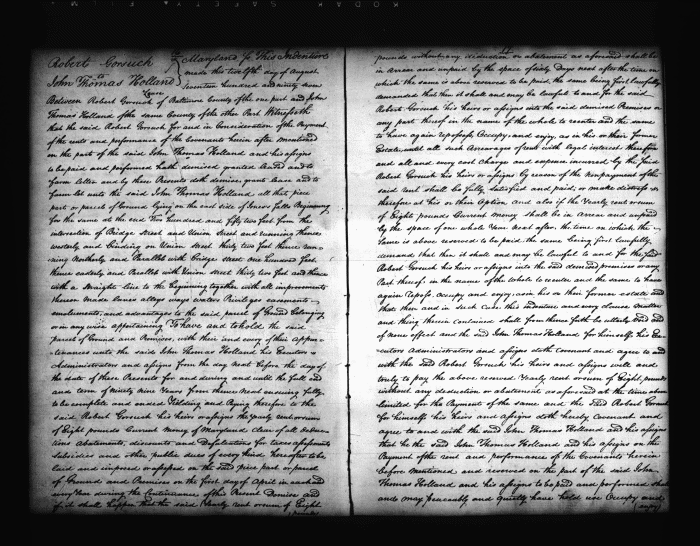 KODAK SAFETY
Robert Gorsuch
to
John Thomas Holland
Lease
Maryland Sc This Indenture
made this twelfth day of August
seventeen hundred and ninety seven
Between Robert Gorsuch of Baltimore County of the one part and John
Thomas Holland of the same County of the other Part Witnesseth
that the said Robert Gorsuch for and in Consideration of the Payment
of the rents and performance of the Covenants herein after mentioned
on the part of the said John Thomas Holland and his assigns
to be paid and performed hath demised granted and to
farm letten and by these Presents doth demise grant lease and to
farm let unto the said John Thomas Holland all that piece
part or parcel of Ground lying on the east side of Jones Falls Beginning
for the same at the end Two hundred and fifty two feet from the
intersection of Bridge Street and Union Street and running thence
westerly and binding on Union Street thirty two feet thence run
ning Northerly and Parallel with Bridge street one hundred feet
thence easterly and Parallel with Union street thirty two feet and thence
with a straight line to the beginning together with all improvements
thereon made lanes alleys ways waters Privileges easements
emoluments and advantages to the said parcel of Ground belonging
or in any wise appertaining To have and to hold the said
parcel of Ground and Premises, with their and every of their appur
tenances unto the said John Thomas Holland his Executors
Administrators and assigns from the day next before the day of
the date of these Presents for and during and until the full end
and term of ninety nine Years from thence next ensuing fully
to be complete and ended Yielding and Paying therefor to the
said Robert Gorsuch his heirs or assigns the Yearly rent or sum
of Eight pounds Current money of Maryland, Clear of all deduc
tions Abatements, discounts and Defalcations for taxes assessments
Subsidies and other public dues of every kind hereafter to be
laid and imposed or assessed on the said piece part or parcel
of Ground and Premises on the first day of April in each and
every Year during the Continuance of this Present Demise and
if it shall happen that the said Yearly rent or sum of Eight
pounds without any deduction or abatement as aforesaid shall be
in Arrear and unpaid by the space of sixty Days next after the time on
which the same is above reserved to be paid, the same being first lawfully
demanded that then it shall and may be lawful to and for the said
Robert Gorsuch his heirs or assigns into the said demised Premises or
any part thereof in the name of the whole to reenter and the same
to have again repossess Occupy and enjoy, as in his or their former
Estate, until all such Arrearages of rent with legal interest therefor
and all and every cost Charge and expence incurred by the said
Robert Gorsuch his heirs or assigns by reason of the Nonpayment of the
said rent shall be fully satisfied and paid, or make distress
therefor at his or their Option, And also if the Yearly rent or sum
of Eight pounds Current money shall be in Arrear and unpaid
by the space of one whole Year next after the time on which the
same is above reserved to be paid the same being first lawfully
demanded, that then it shall and may be lawful to and for the said
Robert Gorsuch his heirs or assigns into the said demised premises or any
Part thereof in the name of the whole to reenter and the same to have
again repossess Occupy and enjoy, as in his or their former estate and
that then and in such Case this Indenture and every clause matter
and thing therein contained shall from thence forth be utterly void and
of none effect and the said John Thomas Holland for himself his Exe
cutors Administrators and assigns doth covenant and agree to and
with the said Robert Gorsuch his heirs and assigns well and
truly to pay the above reserved Yearly rent or sum of Eight pounds
without any deduction or abatement as aforesaid at the time above
limited for the Payment of the same and the said Robert Gorsuch
for himself his heirs and assigns doth hereby Covenant and
agree to and with the said John Thomas Holland and his assigns
that he the said John Thomas Holland and his assigns on the
Payment of the rent and performance of the Covenants herein
before mentioned and reserved on the part of the said John
Thomas Holland and his assigns to be paid and performed shall
and may peaceably and quietly have hold use Occupy and
(enjoy